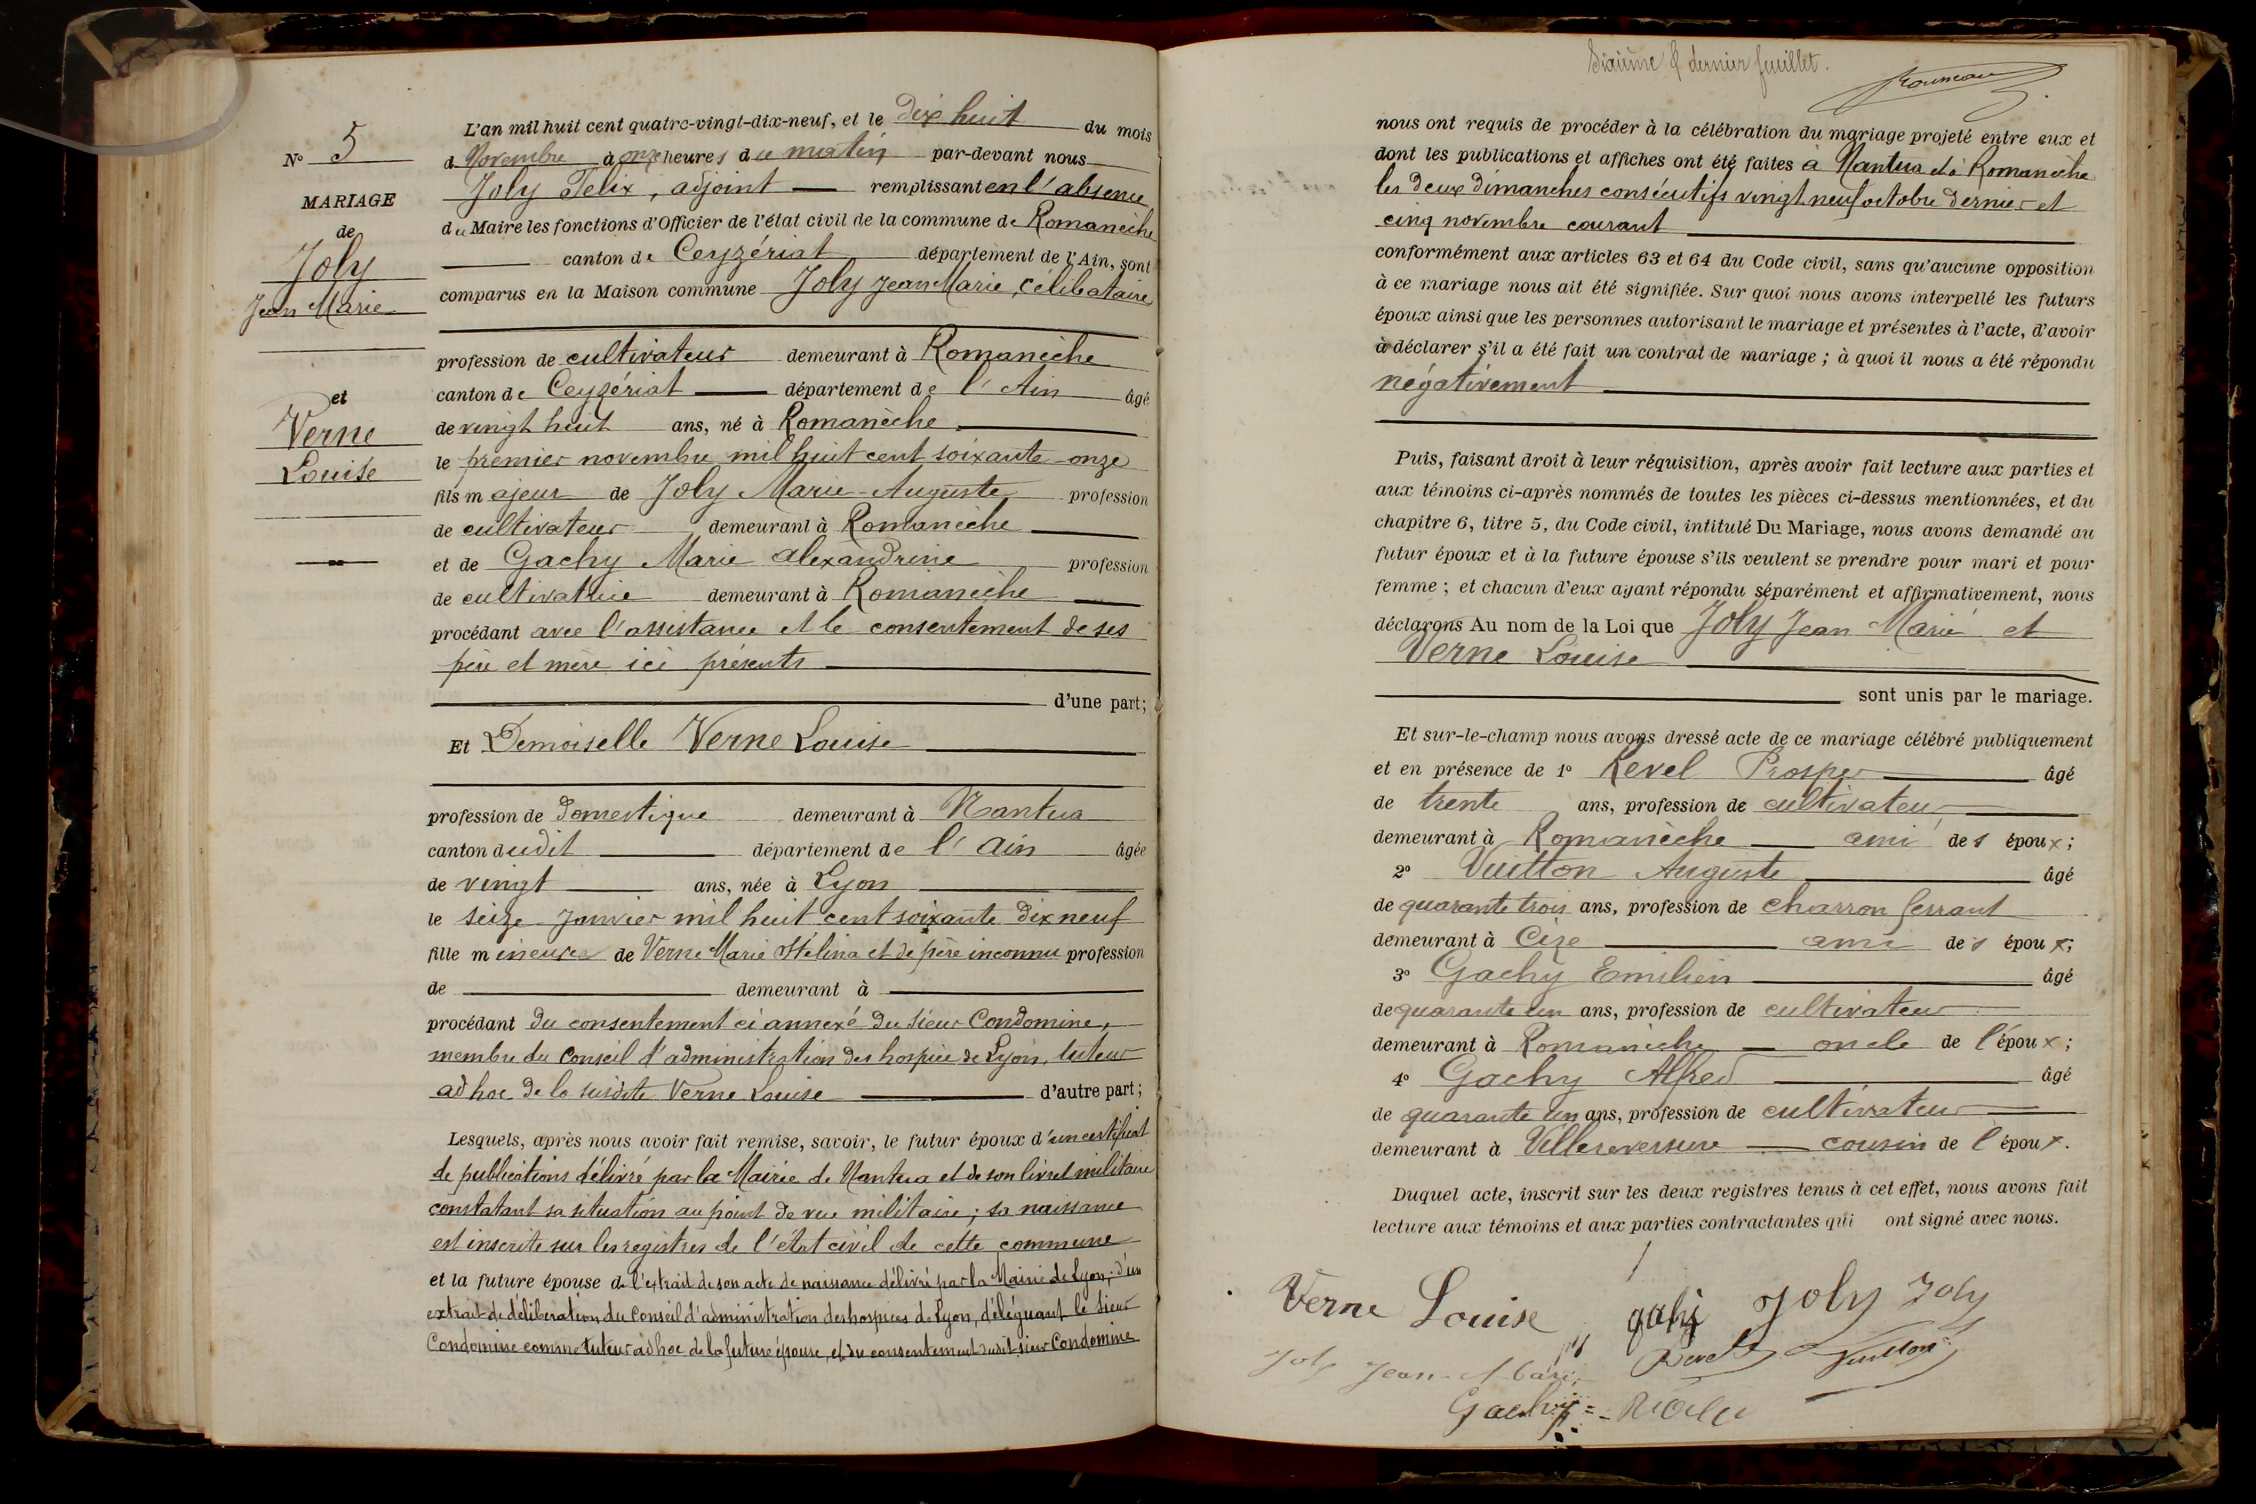 N° 5
MARIAGE
de
Joly
Jean Marie
et
Verne
Louise
L'an mil huit cent quatre-vingt-dix-neuf, et le dix huit du mois
d Novembre à onze heures du matin par-devant nous
Joly Felix, adjoint remplissant en l'absence
du Maire les fonctions d'Officier de l'état civil de la commune de Romanèche
canton de Ceyzériat département de l'Ain, sont
comparus en la Maison commune Joly Jean Marie, célibataire
profession de cultivateur demeurant à Romanèche
canton de Ceyzériat département de l'Ain âgé
de vingt huit ans, né à Romanèche
le premier novembre mil huit cent soixante-onze
fils majeur de Joly Marie-Auguste profession
de cultivateur demeurant à Romanèche
et de Gachy Marie Alexandrine profession
de cultivatrice demeurant à Romanèche
procédant avec l'assistance et le consentement de ses
père et mère ici présents
d'une part;
Et Demoiselle Verne Louise
profession de domestique demeurant à Nantua
canton dudit département de l'Ain âgée
de vingt ans, née à Lyon
le seize Janvier mil huit cent soixante dix neuf
fille mineure de Verne Marie Hélina et de père inconnu profession
de demeurant à
procédant du consentement ci annexé du sieur Condomine,
membre du Conseil d'administration des hospices de Lyon, tuteur
ad hoc de la susdite Verne Louise d'autre part;
Lesquels, après nous avoir fait remise, savoir, le futur époux d'un certificat
de publications délivré par la Mairie de Nantua et de son livret militaire
constatant sa situation au point de vue militaire; sa naissance
est inscrite sur les registres de l'état civil de cette commune
et la future épouse de l'extrait de son acte de naissance délivré par la Mairie de Lyon; d'un
extrait de délibération du Conseil d'administration des hospices de Lyon, déléguant le sieur
Condomine comme tuteur ad hoc de la future épouse, et du consentement dudit sieur Condomine
Dixième & dernier feuillet.
nous ont requis de procéder à la célébration du mariage projeté entre eux et
dont les publications et affiches ont été faites à Nantua et à Romanèche
les deux dimanches consécutifs vingt neuf octobre dernier et
cinq novembre courant
conformément aux articles 63 et 64 du Code civil, sans qu'aucune opposition
à ce mariage nous ait été signifiée. Sur quoi nous avons interpellé les futurs
époux ainsi que les personnes autorisant le mariage et présentes à l'acte, d'avoir
à déclarer s'il a été fait un contrat de mariage; à quoi il nous a été répondu
négativement
Puis, faisant droit à leur réquisition, après avoir fait lecture aux parties et
aux témoins ci-après nommés de toutes les pièces ci-dessus mentionnées, et du
chapitre 6, titre 5, du Code civil, intitulé Du Mariage, nous avons demandé au
futur époux et à la future épouse s'ils veulent se prendre pour mari et pour
femme; et chacun d'eux ayant répondu séparément et affirmativement, nous
déclarons Au nom de la Loi que Joly Jean Marie et
Verne Louise
sont unis par le mariage.
Et sur-le-champ nous avons dressé acte de ce mariage célébré publiquement
et en présence de 1° Revel Prosper âgé
de trente ans, profession de cultivateur,
demeurant à Romanèche ami des époux;
2° Vuitton Auguste âgé
de quarante trois ans, profession de charron ferrant
demeurant à Cize ami des époux;
3° Gachy Emilien âgé
de quarante un ans, profession de cultivateur
demeurant à Romanèche oncle de l'époux;
4° Gachy Alfred âgé
de quarante un ans, profession de cultivateur
demeurant à Villereversure cousin de l'époux.
Duquel acte, inscrit sur les deux registres tenus à cet effet, nous avons fait
lecture aux témoins et aux parties contractantes qui ont signé avec nous.
Verne Louise Joly Joly
Joly Jean-Marie Revel Vuitton
Gachy